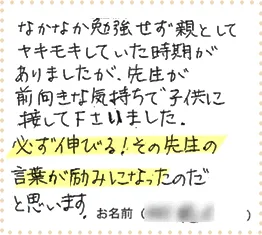 なかなか勉強せず親として
ヤキモキしていた時期が
ありましたが、先生が
前向きな気持ちで子供に
接して下さりました。
必ず伸びる!その先生の
言葉が励みになったのだ
と思います。
お名前( )